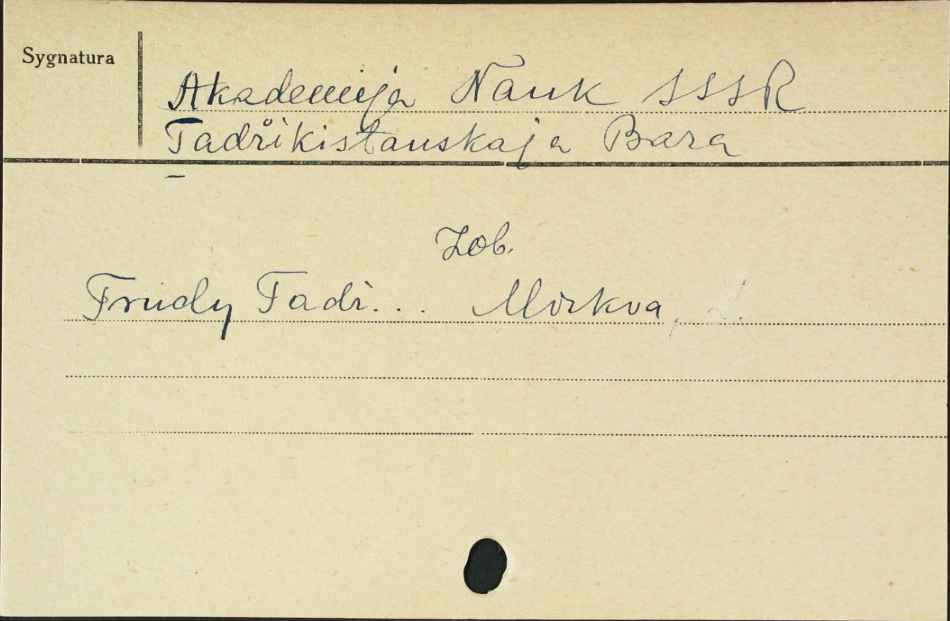 Sygnatura
Akademija Nauk SSSR
Tadžikistanskaja Baza
Zob.
Trudy Tadž... Moskva